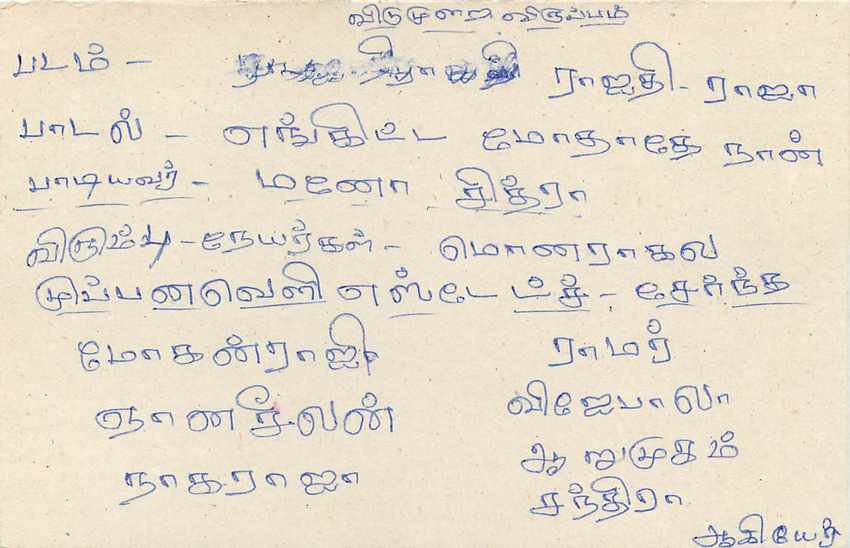 விடுமுறை விருப்பம்
படம் - ராஜதி - ராஜா
பாடல் - எங்கிட்ட மோதாதே நான்
பாடியவர் - மனோ சித்ரா
விரும்பு - நேயர்கள் - மொனராகல
முப்பனவெளி எஸ்டேட்ச் - சேர்ந்த
மோகன்ராஜ் ராமர்
ஞானசீலன் விஜேபாலா
நாகராஜா ஆறுமுகம்
சந்திரா
ஆகியேர்